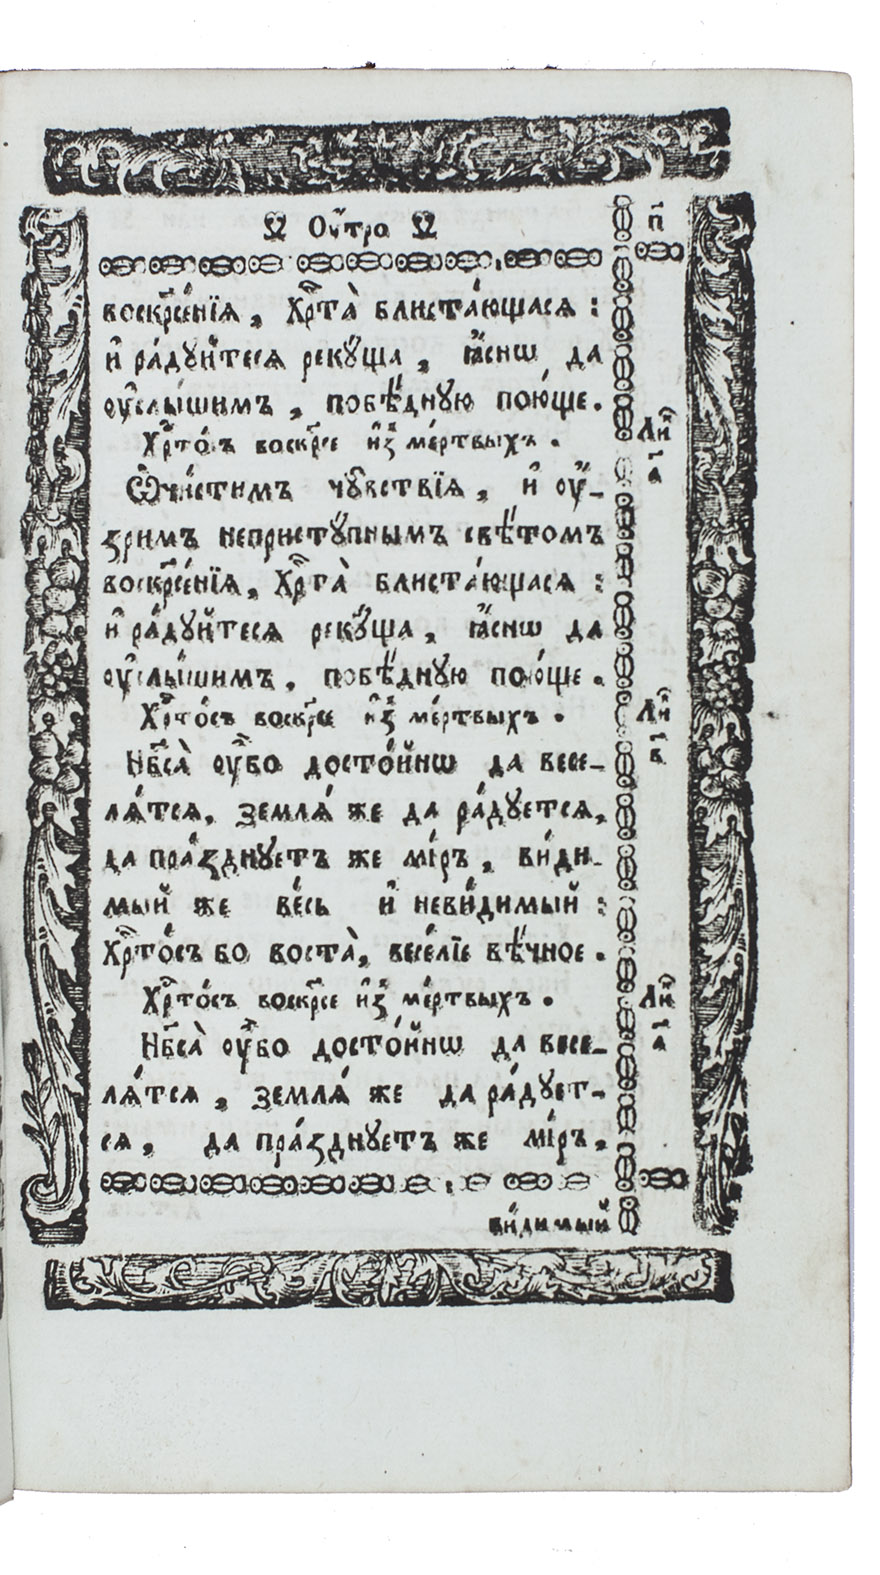 Ѡ Оу҆́тра Ѡ
п҃
воскрⷭ҇е́нїѧ, Хрⷭ҇та̀ блиста́ющасѧ :
и҆ ра́дуйтесѧ реку́ща, ꙗ҆́снѡ да
оу҆слы́шимъ, побѣ́дную пою́ще.
Хрⷭ҇то́съ воскрⷭ҇е и҆з̾ ме́ртвыхъ.
Лиⷭ҇
а҃
Ѡ҆чи́стимъ чу̑вствїѧ, и҆ оу҆́-
зримъ непристу́пнымъ свѣ́томъ
воскрⷭ҇е́нїѧ, Хрⷭ҇та̀ блиста́ющасѧ :
и҆ ра́дуйтесѧ реку́ща, ꙗ҆́снѡ да
оу҆слы́шимъ, побѣ́дную пою́ще.
Хрⷭ҇то́съ воскрⷭ҇е и҆з̾ ме́ртвыхъ.
Лиⷭ҇
в҃
Нб҃са̀ оу҆́бо досто́йнѡ да весе-
лѧ́тсѧ, землѧ́ же да ра́дуетсѧ,
да пра́зднуетъ же мі́ръ, ви́ди-
мый же ве́сь и҆ неви́димый :
Хрⷭ҇то́съ бо воста̀, весе́лїе вѣ́чное.
Хрⷭ҇то́съ воскрⷭ҇е и҆з̾ ме́ртвыхъ.
Лиⷭ҇
а҃
Нб҃са̀ оу҆́бо досто́йнѡ да весе-
лѧ́тсѧ, землѧ́ же да ра́дует-
сѧ, да пра́зднуетъ же мі́ръ,
ви́димый